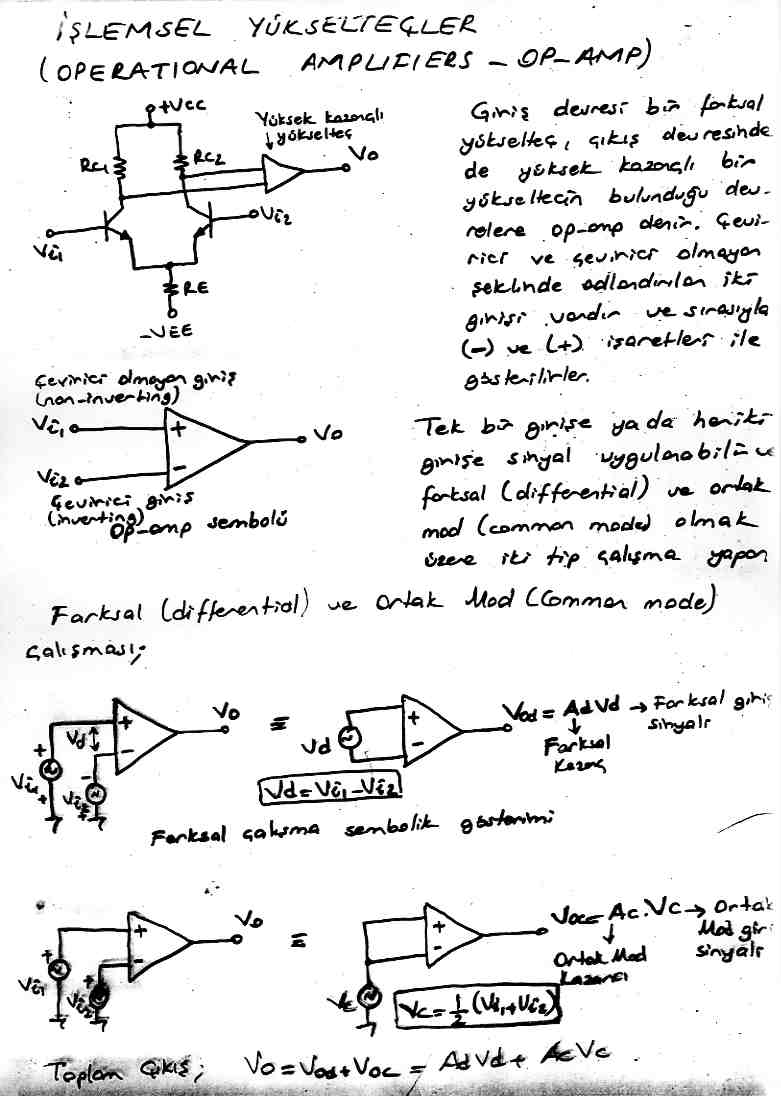 İŞLEMSEL YÜKSELTEÇLER
(OPERATIONAL AMPLIFIERS - OP-AMP)
+VCC
RC1
RC2
Yüksek kazançlı
yükselteç
Vo
Vi1
Vi2
RE
-VEE
Giriş devresi bir farksal
yükselteç, çıkış devresinde
de yüksek kazançlı bir
yükseltecin bulunduğu dev-
relere op-amp denir. Çevi-
rici ve çevirici olmayan
şeklinde adlandırılan iki
girişi vardır ve sırasıyla
(-) ve (+) işaretleri ile
gösterilirler.
Çevirici olmayan giriş
(non-inverting)
Vi1
+
Vo
Vi2
-
Çevirici giriş
(inverting)
Op-amp sembolü
Tek bir girişe yada heriki
girişe sinyal uygulanabilir ve
farksal (differential) ve ortak
mod (common mode) olmak
üzere iki tip çalışma yapar
Farksal (differential) ve Ortak Mod (Common mode)
çalışması;
Vi1
Vd
Vi2
+
-
Vo
≡
Vd
+
-
Vod = AdVd → Farksal giriş
sinyali
Farksal
kazanç
Vd = Vi1 - Vi2
Farksal çalışma sembolik gösterimi
Vi1
Vi2
+
-
Vo
≡
Vc
+
-
Voc = Ac.Vc → Ortak
Mod giri
sinyali
Ortak Mod
kazancı
Vc = 1/2 (Vi1 + Vi2)
Toplam Çıkış; Vo = Vod + Voc = AdVd + AcVc